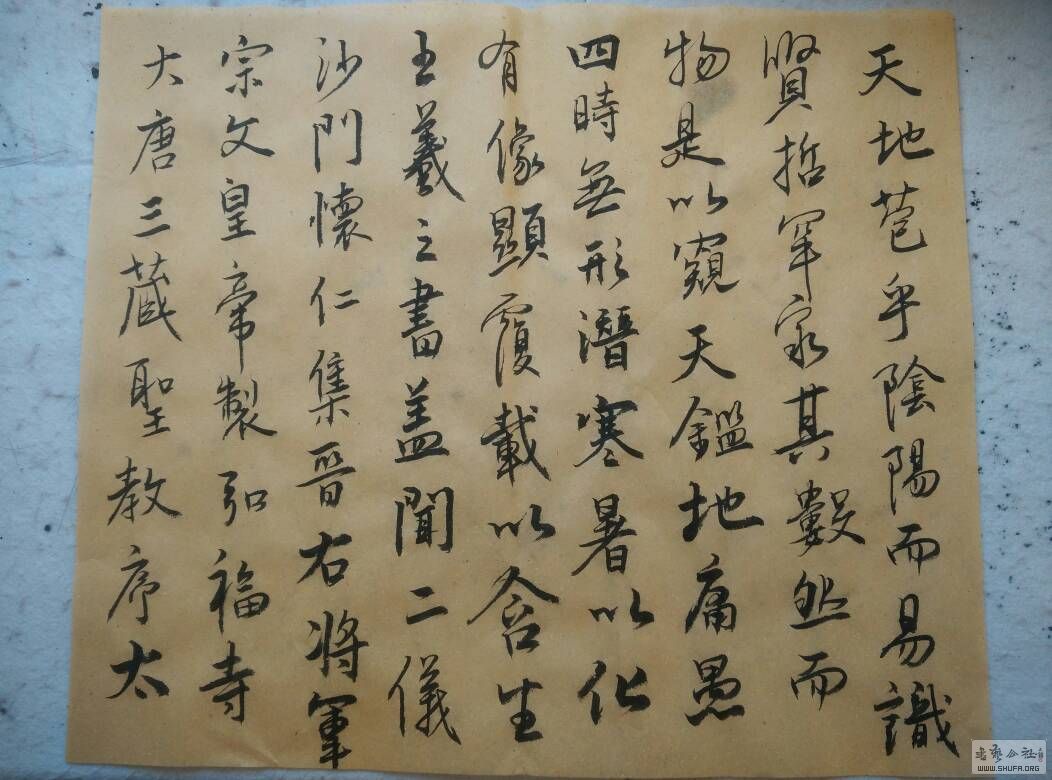 大唐三藏聖教序太
宗文皇帝製弘福寺
沙門懷仁集晉右將軍
王羲之書蓋聞二儀
有像顯覆載以含生
四時無形潛寒暑以化
物是以窺天鑑地庸愚
賢哲罕窮其數然而
天地苞乎陰陽而易識
书艺公社
WWW.SHUFA.ORG